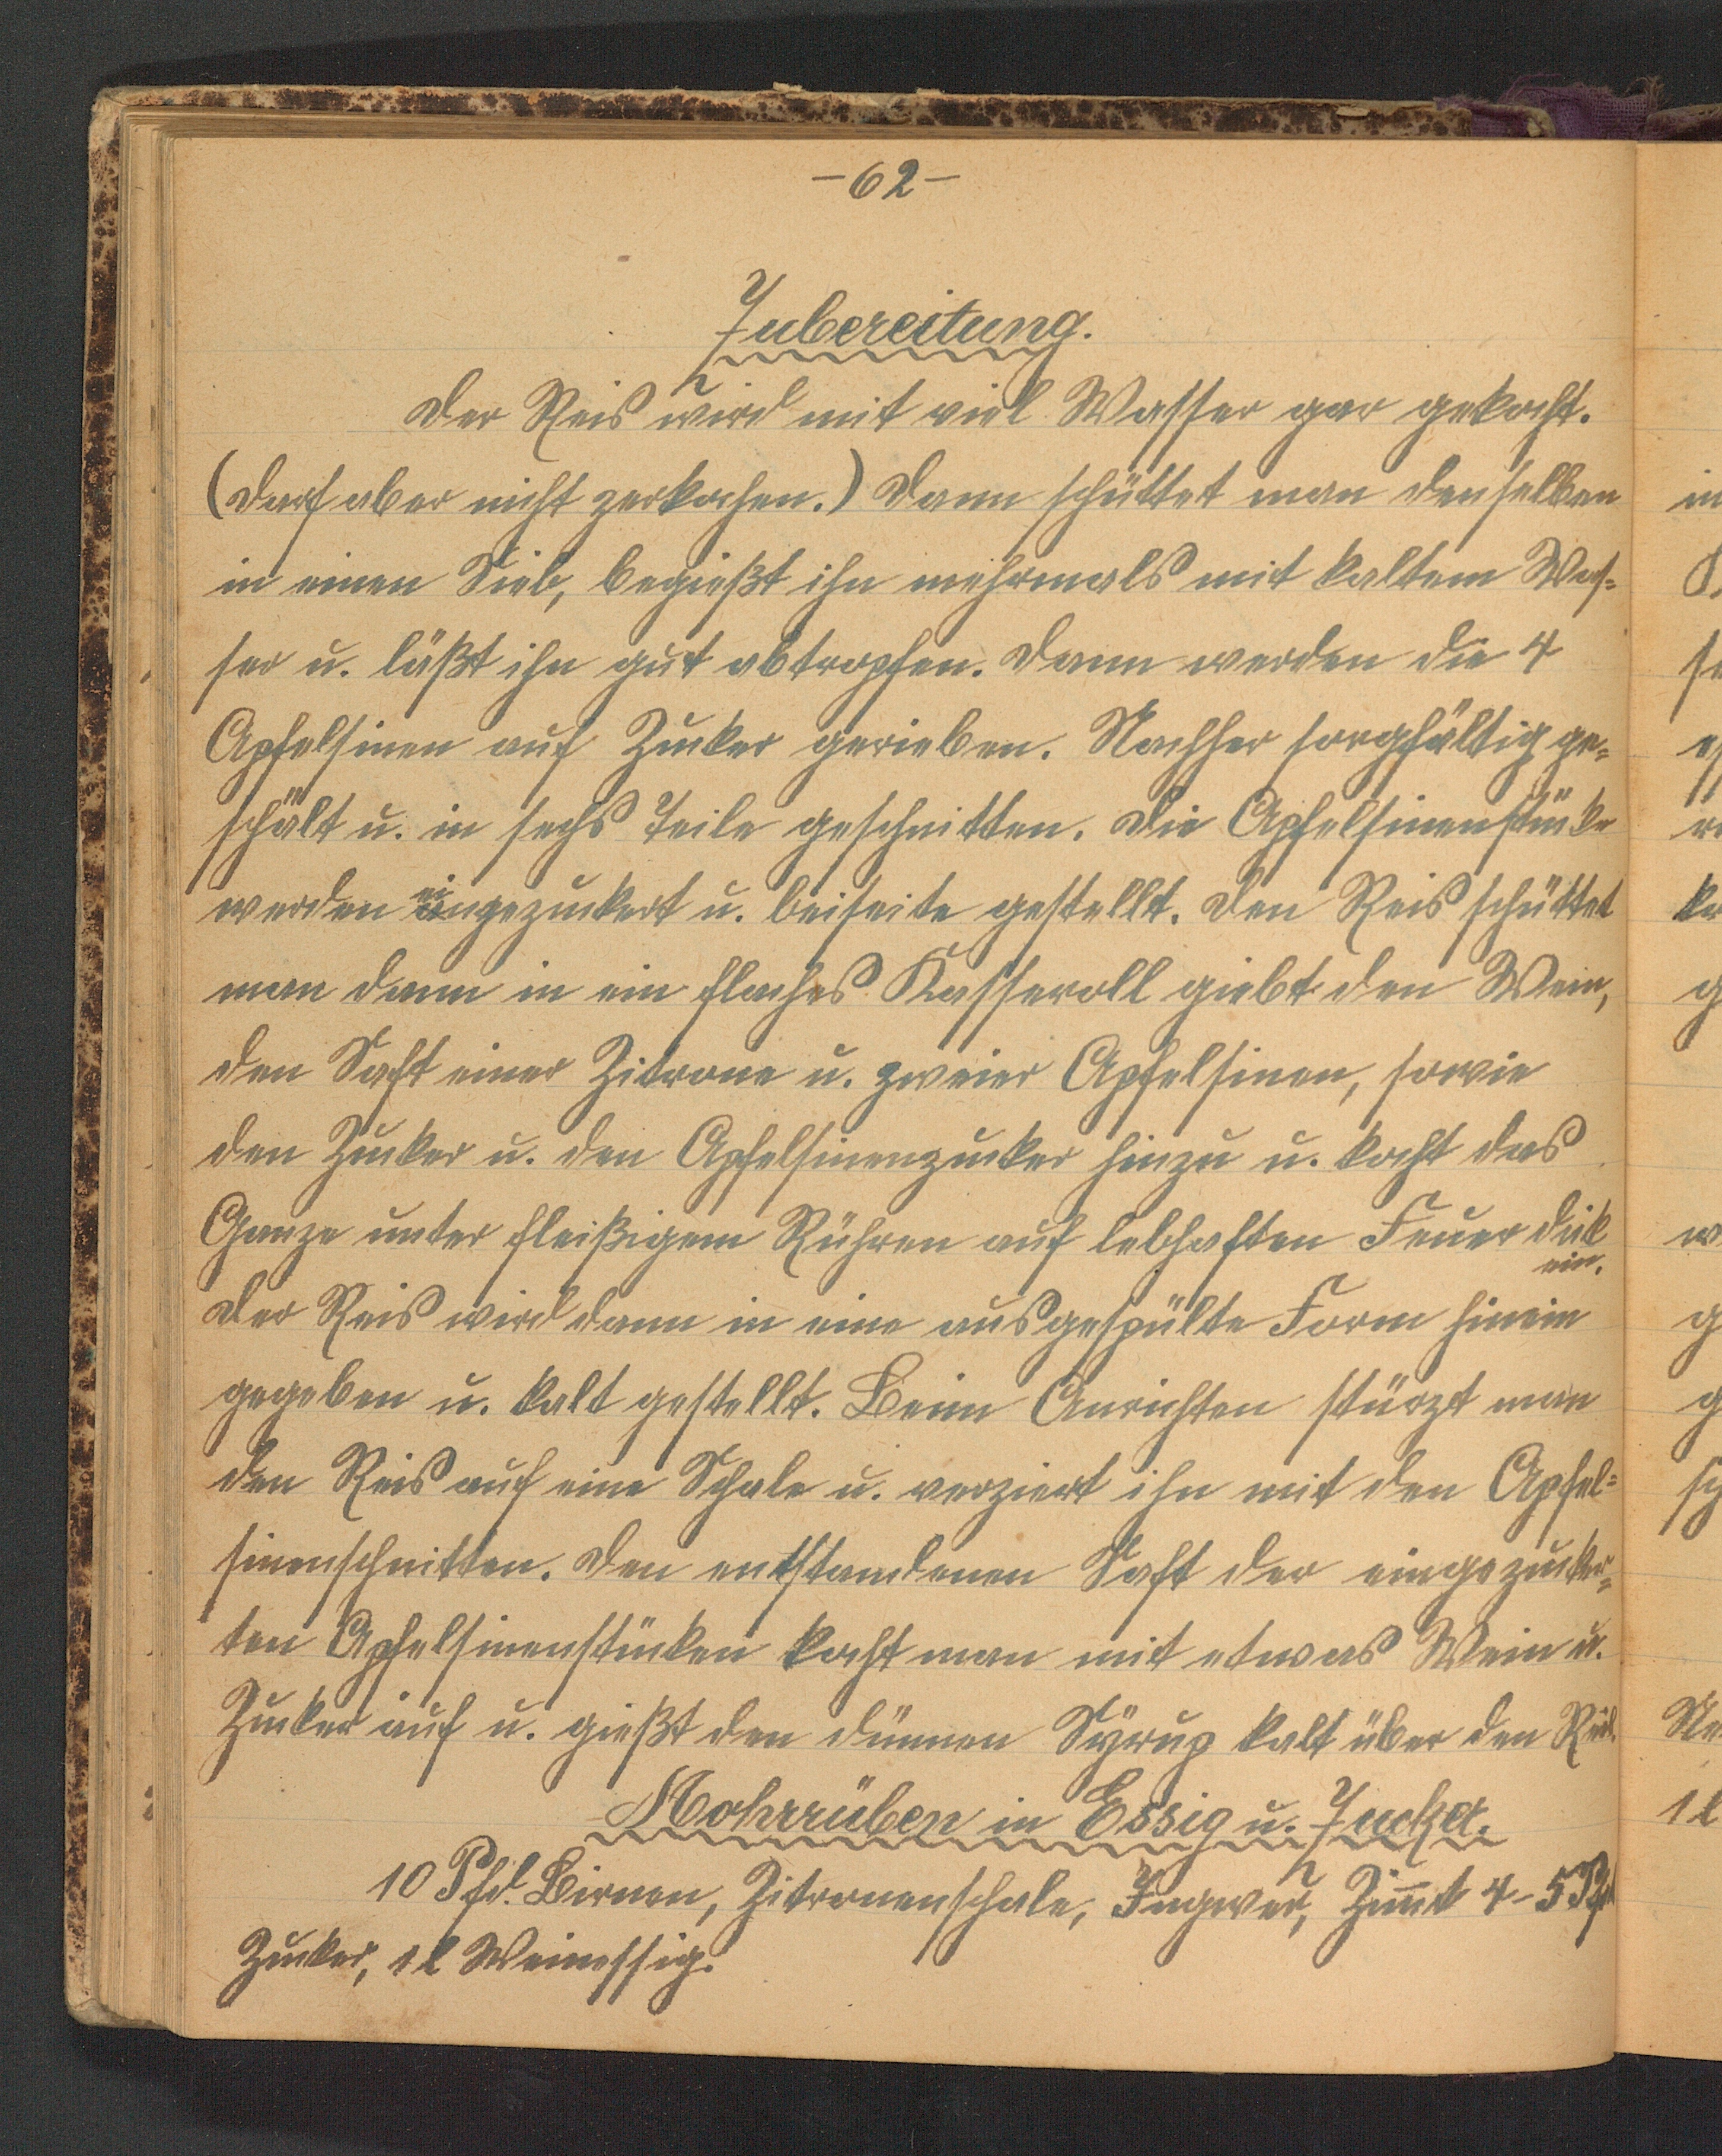 -62-
Zubereitung.
Der Reis wird mit viel Wasser gar gekocht.
(Darf aber nicht zerkochen.) Dann schüttet man denselben
in einen Sieb, begießt ihn mehrmals mit kaltem Was=
ser u. läßt ihn gut abtropfen. Dann werden die 4
Apfelsinen auf Zucker gerieben. Nachher sorgfältig ge=
schält u. in sechs Teile geschnitten. Die Apfelsinenstücke
werden eingezuckert u. beiseite gestellt. Den Reis schüttet
man dann in ein flaches Kasseroll giebt den Wein,
den Saft einer Zitrone u. zweier Apfelsinen, sowie
den Zucker u. den Apfelsinenzucker hinzu u. kocht das
Ganze unter fleißigem Rühren auf lebhaften Feuer dick
ein.
Der Reis wird dann in eine ausgespülte Form hinein
gegeben u. kalt gestellt. Beim Anrichten stürzt man
den Reis auf eine Schale u. verziert ihn mit den Apfel=
sinenschnitten. Den entstandenen Saft der eingezucker=
ten Apfelsinenstücken kocht man mit etwas Wein u.
Zucker auf u. gießt den dünnen Syrup kalt über den
Mohrrüben in Essig u. Zucker.
10 Pfd. Birnen, Zitronenschale, Ingwer, Zim̅t 4-5 Pfd
Zucker, 1 l Weinessig.